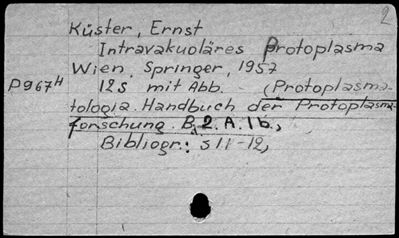 2
Küster, Ernst
Intravakuoläres Protoplasma
Wien, Springer, 1957
P967H 12S mit Abb. (Protoplasma-
tologia. Handbuch der Protoplasma-
forschung. B. 2. A. 1b.,
Bibliogr.: S 11-12,